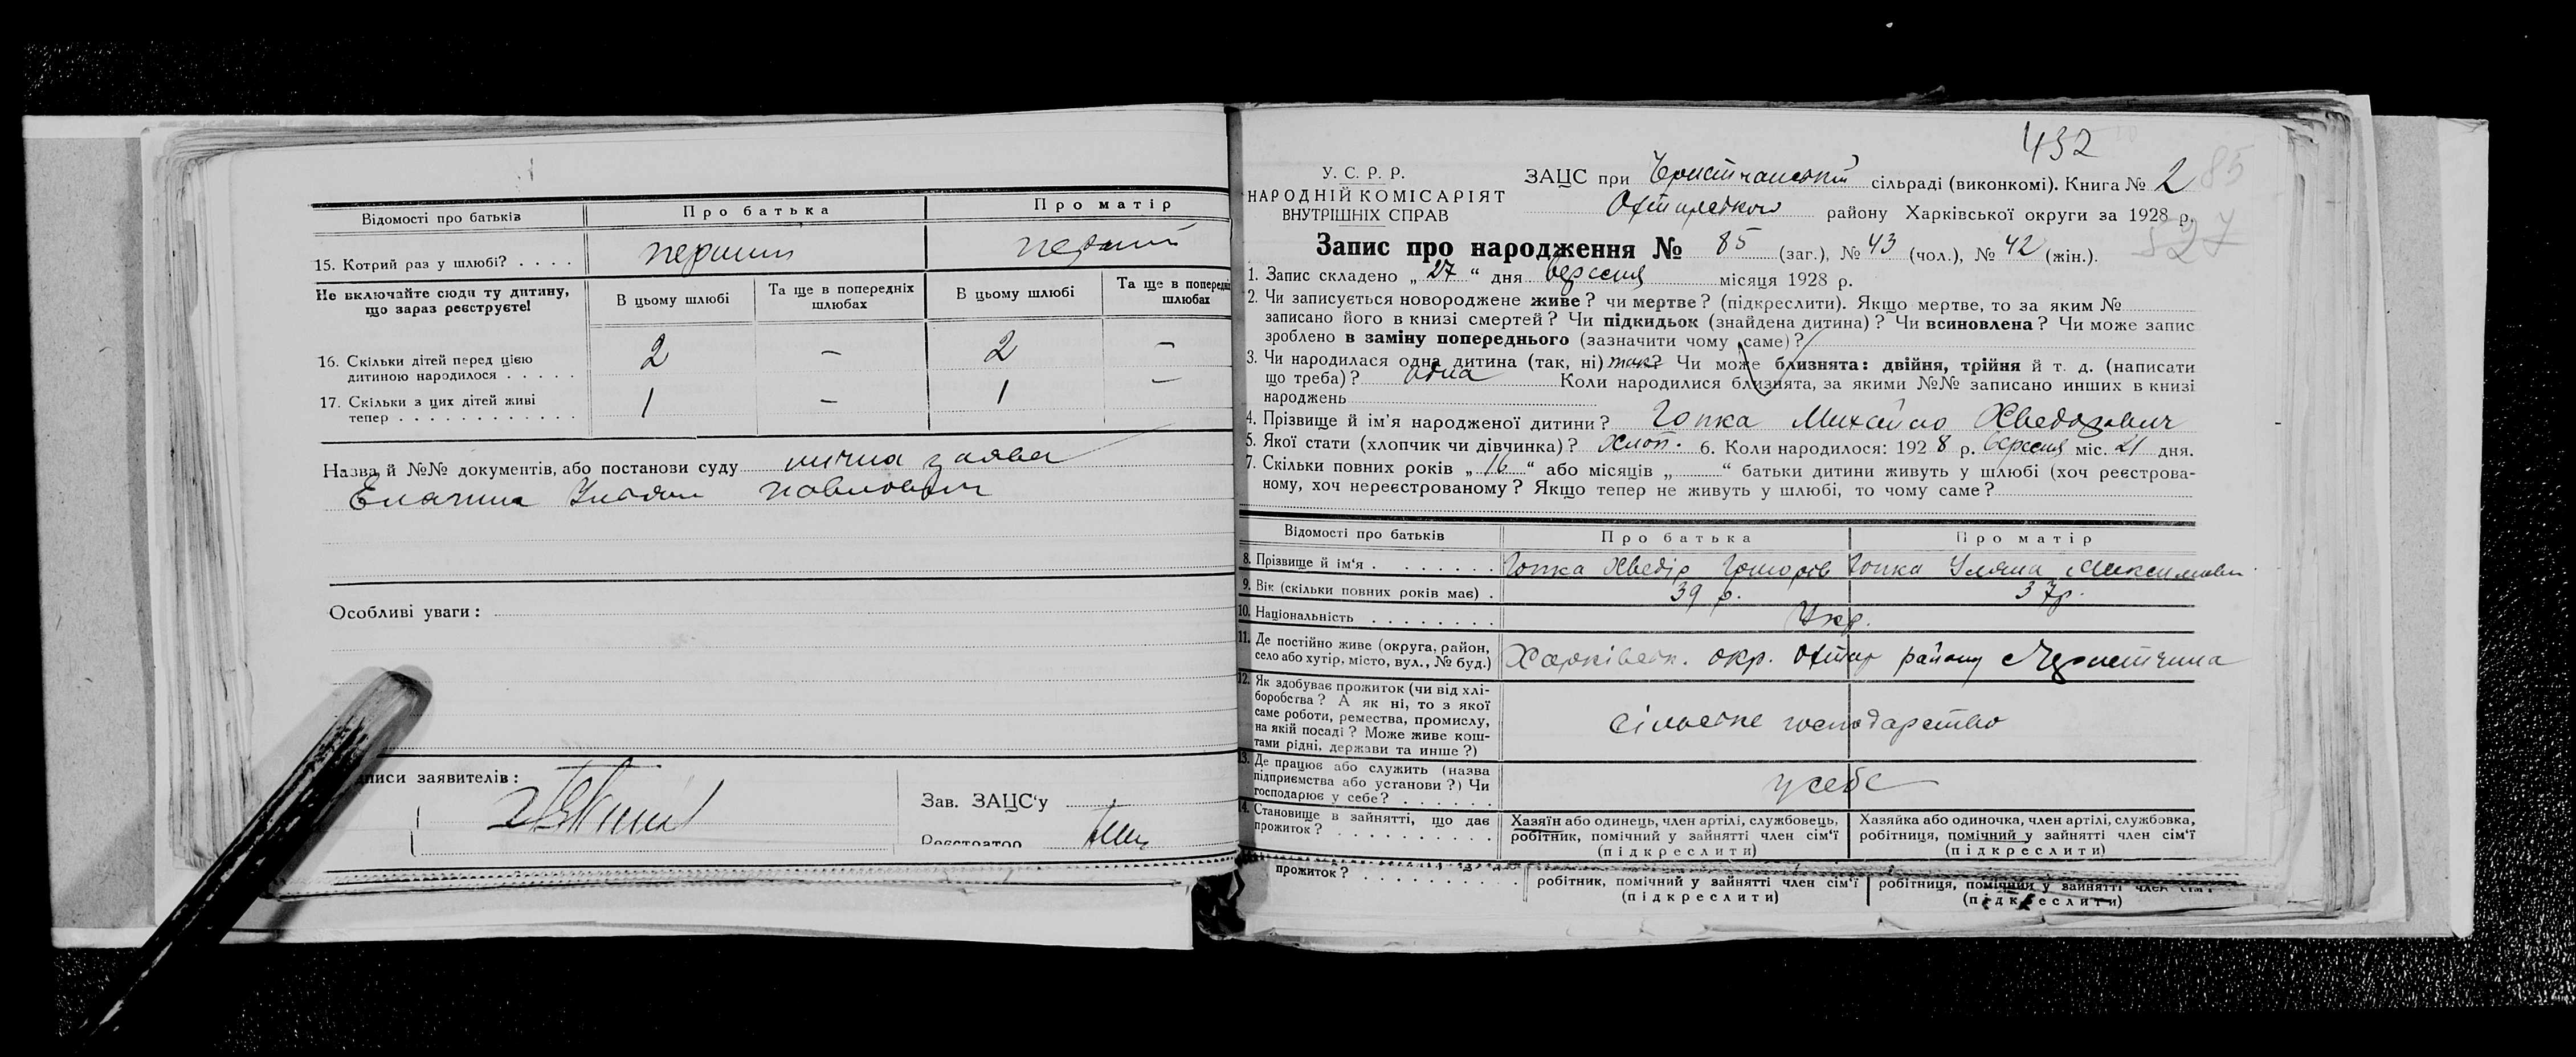 Відомості про батьків
Про батька
Про матір
15. Котрий раз у шлюбі? . . . .
перший
перший
Не включайте сюди ту дитину, що зараз реєструєте!
В цьому шлюбі
Та ще в попередніх шлюбах
В цьому шлюбі
Та ще в попередні
шлюбах
16. Скільки дітей перед цією
дитиною народилося . . . . .
2
—
2
—
17. Скільки з цих дітей живі
тепер . . . . . . . . . . . .
1
—
1
—
Назва й №№ документів, або постанови суду
заява
Особливі уваги:
дписи заявителів:
Зав. ЗАЦС'у
Реєстратор
432
85
527
У. С. Р. Р.
НАРОДНІЙ КОМІСАРІЯТ
ВНУТРІШНІХ СПРАВ
ЗАЦС при сільраді (виконкомі). Книга № 2
району Харківської округи за 1928 р.
Запис про народження № 85 (заг.), № 43 (чол.), № 42 (жін.).
1. Запис складено „ 27 “ дня вересня місяця 1928 р.
2. Чи записується новороджене живе? чи мертве? (підкреслити). Якщо мертве, то за яким №
записано його в книзі смертей? Чи підкидьок (знайдена дитина)? Чи всиновлена? Чи може запис
зроблено в заміну попереднього (зазначити чому саме)?
3. Чи народилася одна дитина (так, ні) так? Чи може близнята: двійня, трійня й т. д. (написати
що треба)? одна Коли народилися близнята, за якими №№ записано инших в книзі
народжень
4. Прізвище й ім'я народженої дитини? Гопка Михайло Хведорович
5. Якої стати (хлопчик чи дівчинка)? хлоп. 6. Коли народилося: 1928 р. вересня міс. 21 дня.
7. Скільки повних років „ 16 “ або місяців „ “ батьки дитини живуть у шлюбі (хоч реєстрова-
ному, хоч нереєстрованому? Якщо тепер не живуть у шлюбі, то чому саме?
Відомості про батьків
Про батька
Про матір
8. Прізвище й ім'я . . . . . . . .
Гопка Хведір Григорів
Гопка Уляна Максимовн
9. Вік (скільки повних років має) .
39 р.
37 р.
10. Національність . . . . . . . .
Укр.
11. Де постійно живе (округа, район,
село або хутір, місто, вул., № буд.)
Харківськ. окр. Охтир району
12. Як здобуває прожиток (чи від хлі-
боробства? А як ні, то з якої
саме роботи, ремества, промислу,
на якій посаді? Може живе кош-
тами рідні, держави та инше?)
сільське господарство
13. Де працює або служить (назва
підприємства або установи?) Чи
господарює у себе? . . . . . .
у себе
14. Становище в зайнятті, що дає
прожиток? . . . . . . . . . .
Хазяїн або одинець, член артілі, службовець,
робітник, помічний у зайнятті член сім'ї
(підкреслити)
Хазяйка або одиночка, член артілі, службовка,
робітниця, помічний у зайнятті член сім'ї
(підкреслити)
прожиток? . . . . . . . . . .
робітник, помічний у зайнятті член сім'ї
(підкреслити)
робітниця, помічний у зайнятті член сім'ї
(підкреслити)